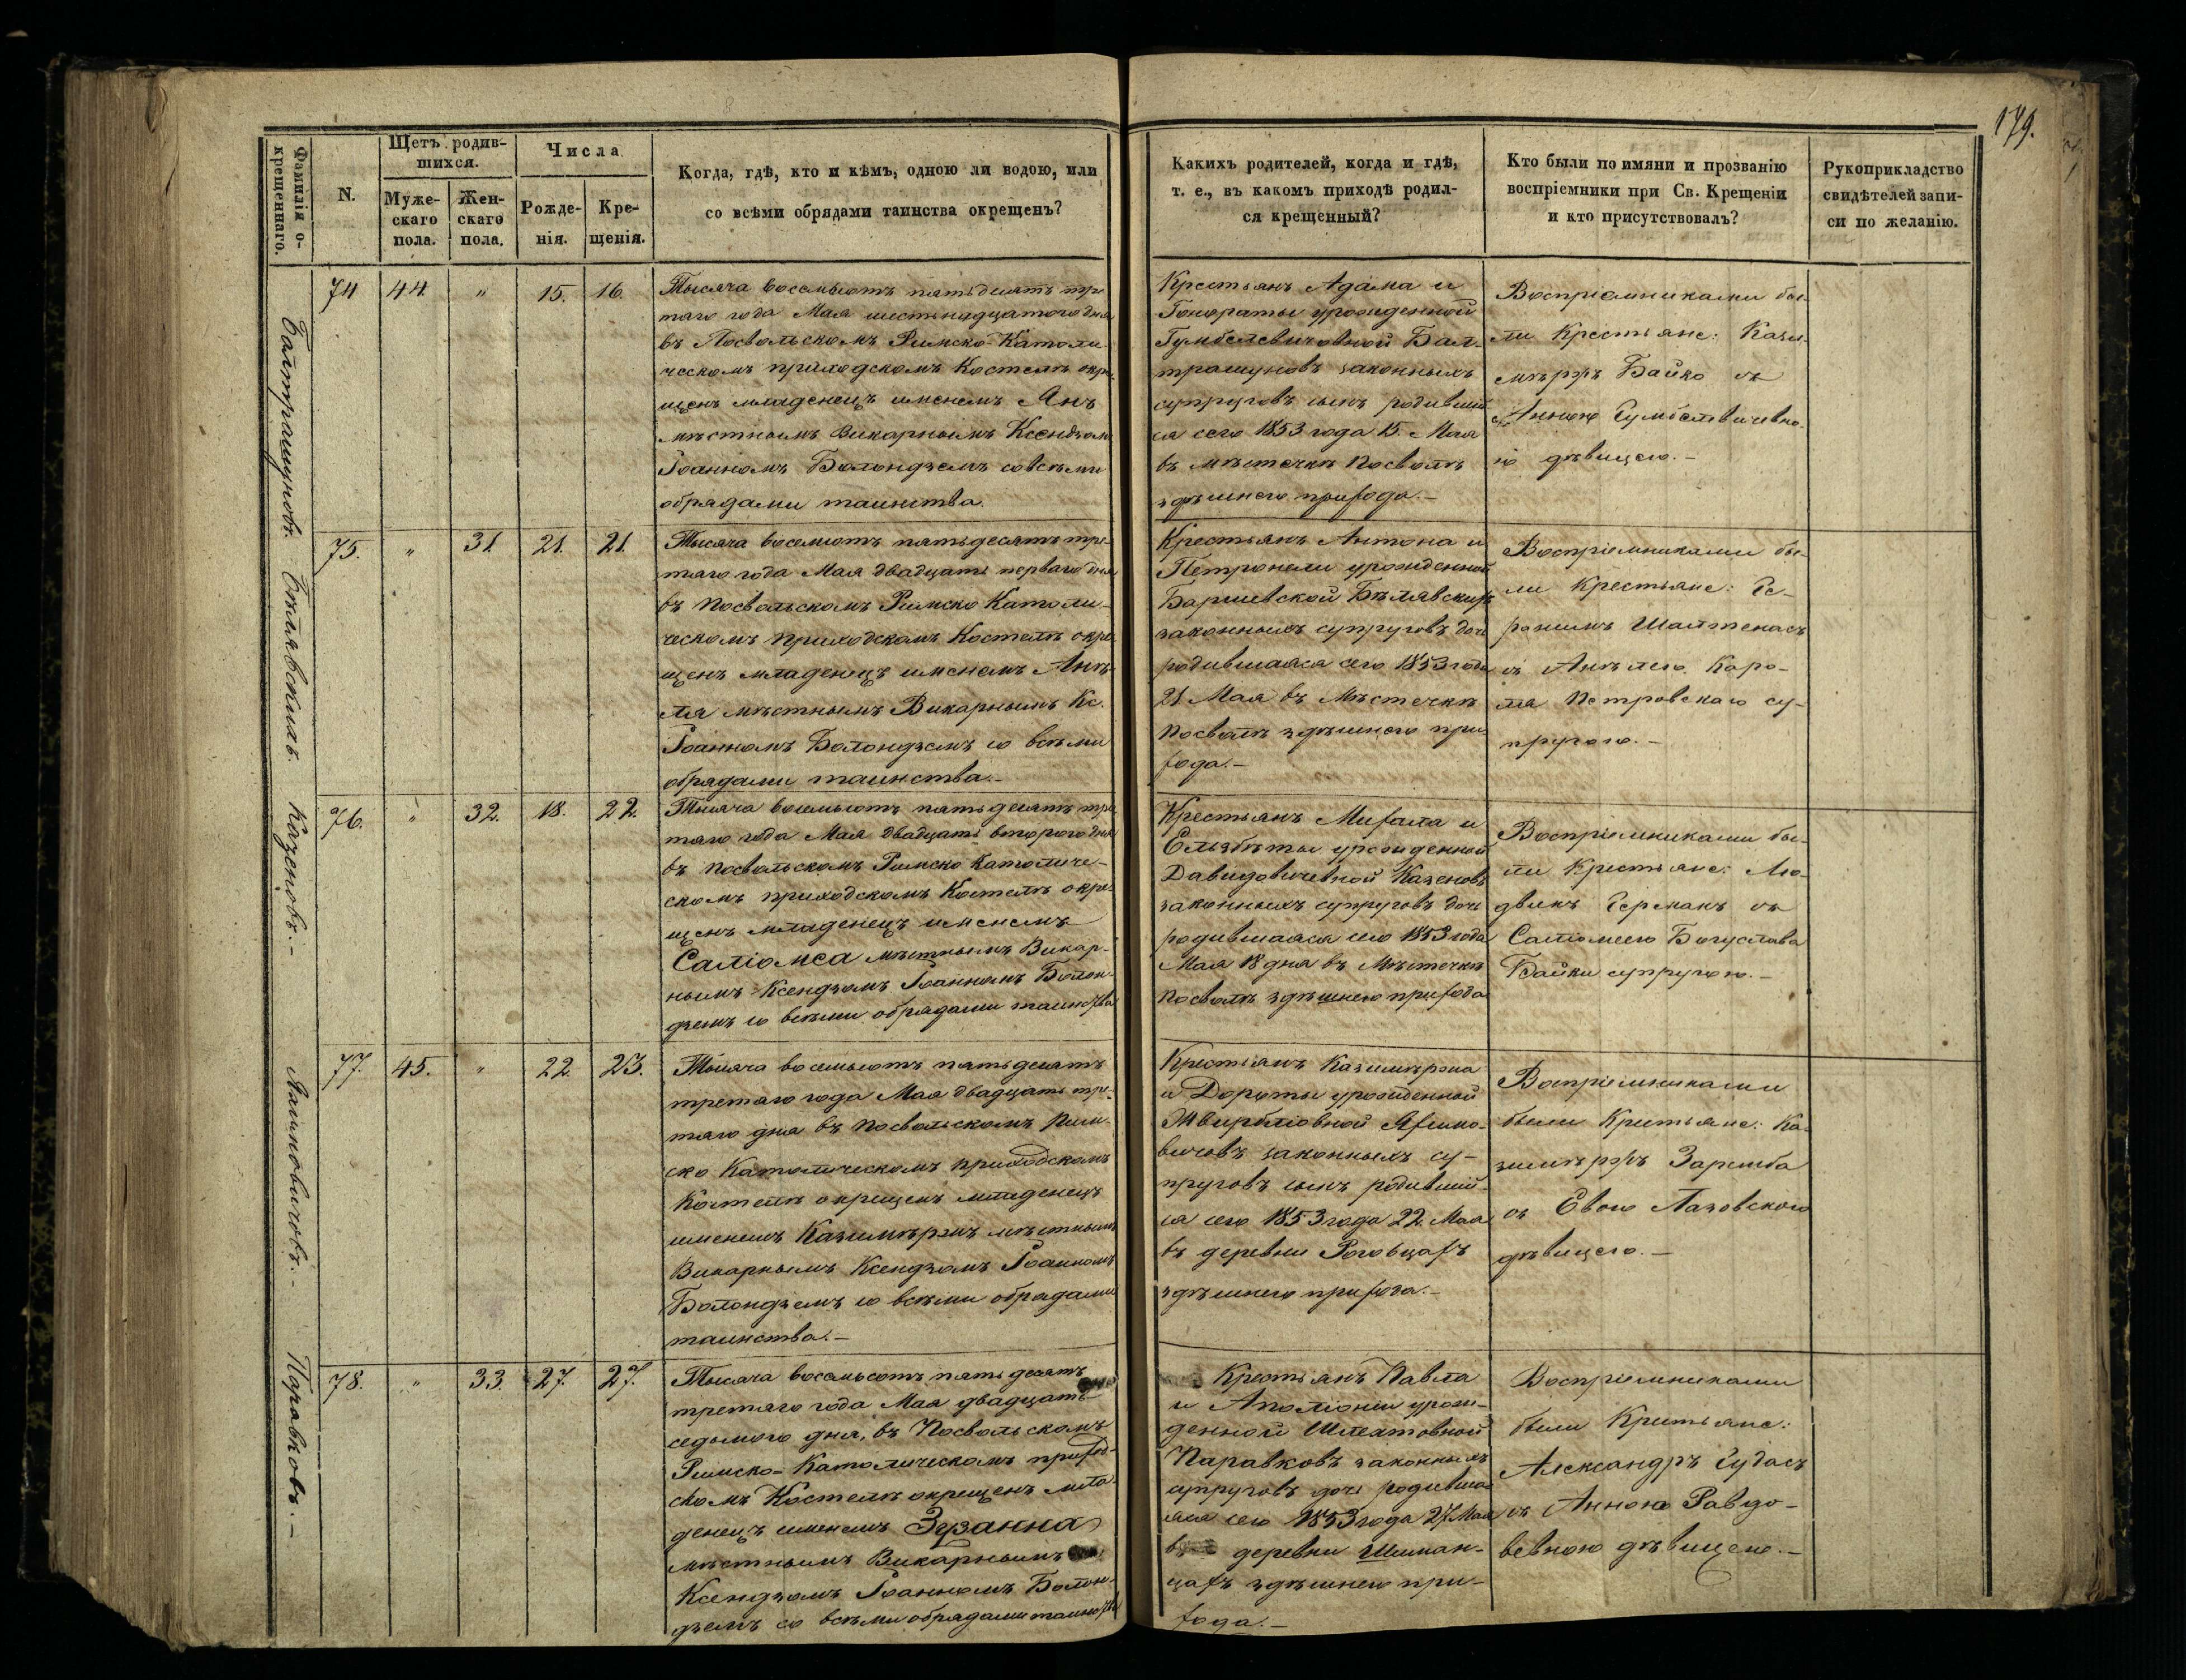 179.
Фамилія о-
крещеннаго.
N.
Щетъ родив-
шихся.
Муже-
скаго
пола.
Жен-
скаго
пола.
Числа
Рожде-
нія.
Кре-
щенія.
Когда, гдѣ, кто и кѣмъ, одною ли водою, или
со всѣми обрядами таинства окрещенъ?
Какихъ родителей, когда и гдѣ,
т. е., въ какомъ приходѣ родил-
ся крещенный?
Кто были по имяни и прозванію
воспріемники при Св. Крещеніи
и кто присутствовалъ?
Рукоприкладство
свидѣтелей запи-
си по желанію.
Балтрашуновъ.
74 44. " 15. 16.
Тысяча восемьсотъ пятьдесятъ тре-
тяго года Мая шестьнадцатого дня
въ Посвольскомъ Римско-Католи-
ческомъ приходскомъ Костелѣ окре-
щенъ младенецъ именемъ Янъ
мѣстнымъ Викарнымъ Ксендзомъ
Іоанномъ Болондземъ со всѣми
обрядами таинства.
Крестьянъ Адама и
Гонораты урожденной
Гумбелевичовной Бал-
трашуновъ законныхъ
супруговъ сынъ родивший-
ся сего 1853 года 15. Мая
въ мѣстечкѣ Посволѣ
здѣшнего прихода.—
Воспріемниками бы-
ли Крестьяне: Кази-
мѣржъ Байко съ
Анною Гумбелевичевно-
ю дѣвицею.—
Бѣлявскихъ.
75. " 31. 21. 21.
Тысяча восемсотъ пятьдесятъ тре-
тяго года Мая двадцать перваго дня
въ Посвольскомъ Римско Католи-
ческомъ приходскомъ Костелѣ окре-
щенъ младенецъ именемъ Анѣ-
ля мѣстнымъ Викарнымъ Кс.
Іоанномъ Болондземъ со всѣми
обрядами таинства.—
Крестьянъ Антона и
Петронели урожденной
Баршевской Бѣлявскихъ
законныхъ супруговъ дочь
родившаяся сего 1853 года
21 Мая въ Мѣстечкѣ
Посволѣ здѣшнего при-
хода.—
Воспріемниками бы-
ли Крестьяне: Ге-
ронимъ Шалтенасъ
съ Анѣлею Каро-
ля Петровскаго су-
пругою.—
Казеновъ.—
76. " 32. 18. 22.
Тысяча восемьсотъ пятьдесятъ тре-
тяго года Мая двадцать второго дня
въ Посвольскомъ Римско Католиче-
скомъ приходскомъ Костелѣ окре-
щенъ младенецъ именемъ
Саліомеа мѣстнымъ Викар-
нымъ Ксендзомъ Іоанномъ Болон-
дземъ со всѣми обрядами таинства
Крестьянъ Михала и
Ельзбѣты урожденной
Давидовичевной Казеновъ
законныхъ супруговъ дочь
родившаяся сего 1853 года
Мая 18 дня въ Мѣстечкѣ
Посволѣ здѣшнего прихода
Воспріемниками бы-
ли Крестьяне: Лю-
двикъ Германъ съ
Саліомеею Богуслава
Байки супругою.—
Яхимовичовъ.—
77. 45. " 22. 23.
Тысяча восемьсотъ пятьдесятъ
третяго года Мая двадцать тре-
тяго дня въ Посвольскомъ Рим-
ско Католическомъ приходскомъ
Костелѣ окрещенъ младенецъ
именемъ Казимѣржъ мѣстнымъ
Викарнымъ Ксендзомъ Іоанномъ
Болондземъ со всѣми обрядами
таинства.—
Крестьянъ Казимѣржа
и Дороты урожденной
Жвирбліовной Яхимо-
вичовъ законныхъ су-
пруговъ сынъ родивший-
ся сего 1853 года 22. Мая
въ деревни Роговцахъ
здѣшнего прихода.—
Воспріемниками
были Крестьяне: Ка-
зимѣржъ Заремба
съ Евою Лазовского
дѣвицею.—
Паровковъ.—
78. " 33. 27. 27.
Тысяча восемьсотъ пятьдесятъ
третяго года Мая двадцать
седьмого дня, въ Посвольскомъ
Римско-Католическомъ приход-
скомъ Костелѣ окрещенъ мла-
денецъ именемъ Зузанна
мѣстнымъ Викарнымъ
Ксендзомъ Іоанномъ Болон-
дземъ со всѣми обрядами таинства
Крестьянъ Павла
и Аполіоніи урож-
денной Шлехтовной
Паравковъ законныхъ
супруговъ дочь родивша-
яся сего 1853 года 27 Мая
въ деревни Шиман-
цахъ здѣшнего при-
хода.—
Воспріемниками
были Крестьяне:
Александръ Гудасъ
съ Анною Равдо-
вевною дѣвицею.—